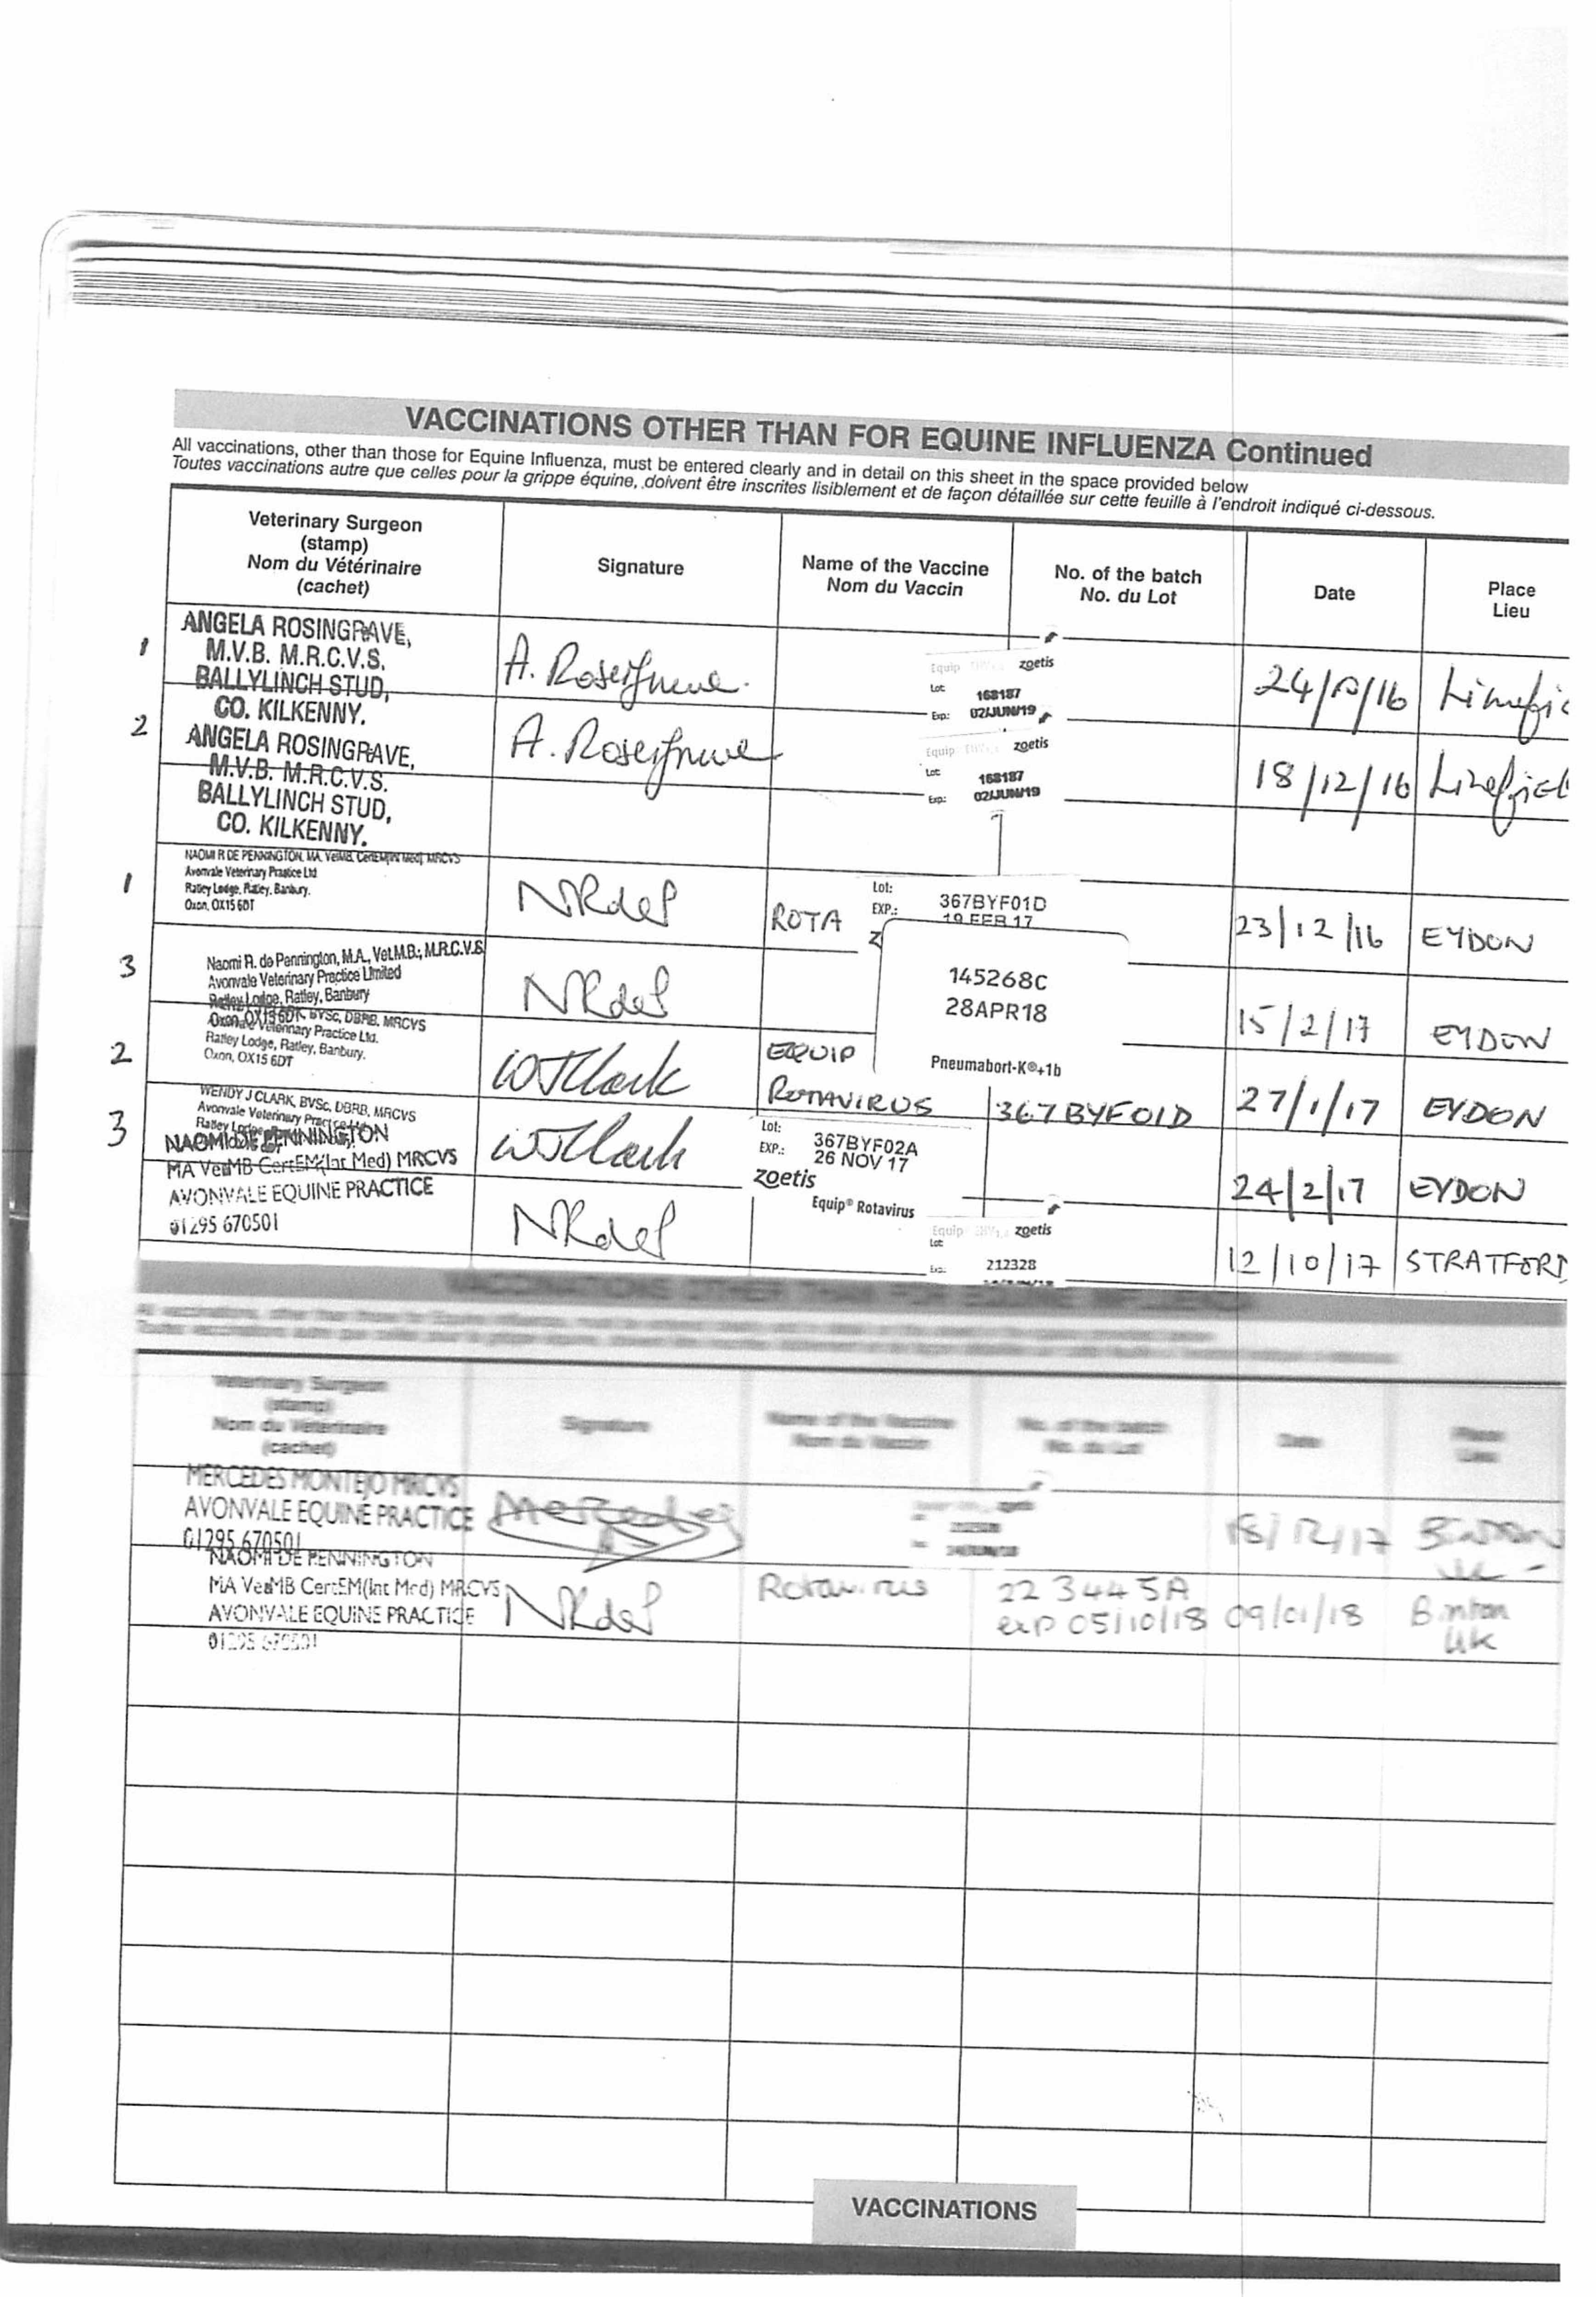 VACCINATIONS OTHER THAN FOR EQUINE INFLUENZA Continued
All vaccinations, other than those for Equine Influenza, must be entered clearly and in detail on this sheet in the space provided below
Toutes vaccinations autre que celles pour la grippe équine, doivent être inscrites lisiblement et de façon détaillée sur cette feuille à l'endroit indiqué ci-dessous.
Veterinary Surgeon
(stamp)
Nom du Vétérinaire
(cachet)
Signature
Name of the Vaccine
Nom du Vaccin
No. of the batch
No. du Lot
Date
Place
Lieu
1
ANGELA ROSINGRAVE,
M.V.B. M.R.C.V.S.
BALLYLINCH STUD,
CO. KILKENNY.
A. Rosingrave
Equip zoetis
Lot: 168187
Exp: 02/JUN/19
24/10/16
2
ANGELA ROSINGRAVE,
M.V.B. M.R.C.V.S.
BALLYLINCH STUD,
CO. KILKENNY.
A. Rosingrave
Equip zoetis
Lot: 168187
Exp: 02/JUN/19
18/12/16
1
NAOMI R DE PENNINGTON, MA, VetMB, CertEM(Int Med), MRCVS
Avonvale Veterinary Practice Ltd
Ratley Lodge, Ratley, Banbury,
Oxon, OX15 6DT
NRdeP
ROTA
Lot: 367BYF01D
EXP.: 19 FEB 17
23/12/16
EYDON
3
Naomi R. de Pennington, M.A., Vet.M.B., M.R.C.V.S
Avonvale Veterinary Practice Limited
Ratley Lodge, Ratley, Banbury
Oxon, OX15 6DT
NRdeP
145268C
28APR18
Pneumabort-K®+1b
15/2/17
EYDON
2
BVSc, DBRB, MRCVS
Avonvale Veterinary Practice Ltd.
Ratley Lodge, Ratley, Banbury.
Oxon, OX15 6DT
WJClark
EQUIP
ROTAVIRUS
367BYF01D
27/1/17
EYDON
3
WENDY J CLARK, BVSc, DBRB, MRCVS
Avonvale Veterinary Practice
WJClark
Lot: 367BYF02A
EXP.: 26 NOV 17
zoetis
Equip® Rotavirus
24/2/17
EYDON
NAOMI DE PENNINGTON
MA VetMB CertEM(Int Med) MRCVS
AVONVALE EQUINE PRACTICE
01295 670501
NRdeP
Equip zoetis
Lot:
Exp: 212328
12/10/17
STRATFORD
VACCINATIONS OTHER THAN FOR EQUINE INFLUENZA
Veterinary Surgeon
(stamp)
Nom du Vétérinaire
(cachet)
Signature
Name of the Vaccine
Nom du Vaccin
No. of the batch
No. du Lot
Date
Place
Lieu
MERCEDES MONTEJO MRCVS
AVONVALE EQUINE PRACTICE
01295 670501
Mercedes
18/12/17
NAOMI DE PENNINGTON
MA VetMB CertEM(Int Med) MRCVS
AVONVALE EQUINE PRACTICE
01295 670501
NRdeP
Rotavirus
223445A
exp 05/10/18
09/01/18
Binton
UK
VACCINATIONS